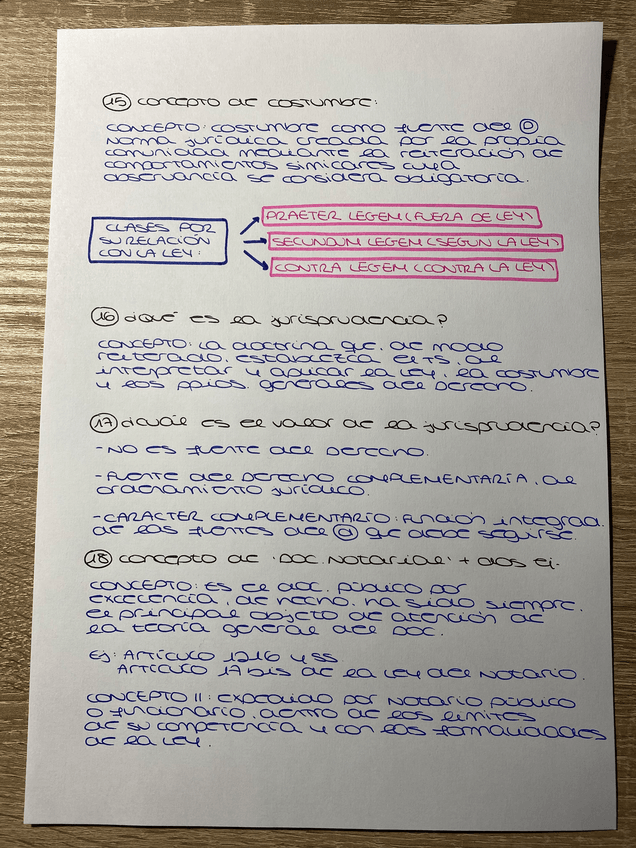 15 CONCEPTO DE COSTUMBRE:
CONCEPTO: COSTUMBRE COMO FUENTE DEL D
NORMA JURÍDICA CREADA POR LA PROPIA
COMUNIDAD MEDIANTE LA REITERACIÓN DE
COMPORTAMIENTOS SIMILARES CUYA
OBSERVANCIA SE CONSIDERA OBLIGATORIA.
CLASES POR
SU RELACIÓN
CON LA LEY:
PRAETER LEGEM (FUERA DE LEY)
SECUNDUM LEGEM (SEGUN LA LEY)
CONTRA LEGEM (CONTRA LA LEY)
16 ¿QUÉ ES LA JURISPRUDENCIA?
CONCEPTO: LA DOCTRINA QE, DE MODO
REITERADO, ESTABLEZCA EL TS, AL
INTERPRETAR Y APLICAR LA LEY, LA COSTUMBRE
Y LOS PPIOS. GENERALES DEL DERECHO.
17 ¿CUÁL ES EL VALOR DE LA JURISPRUDENCIA?
- NO ES FUENTE DEL DERECHO.
- FUENTE DEL DERECHO COMPLEMENTARÍA, AL
ORDENAMIENTO JURÍDICO.
- CARÁCTER COMPLEMENTARIO: FUNCIÓN INTEGRAD.
DE LAS FUENTES DEL D QE DEBE SEGUIRSE.
18 CONCEPTO DE "DOC. NOTARIAL" + DOS EJ.
CONCEPTO: ES EL DOC. PÚBLICO POR
EXCELENCIA, DE HECHO, HA SIDO SIEMPRE,
EL PRINCIPAL OBJETO DE ATENCIÓN DE
LA TEORÍA GENERAL DEL DOC.
EJ: ARTÍCULO 1216 Y SS.
ARTÍCULO 17 BIS DE LA LEY DEL NOTARIO.
CONCEPTO II: EXPEDIDO POR NOTARIO PÚBLICO
O FUNCIONARIO, DENTRO DE LOS LÍMITES
DE SU COMPETENCIA Y CON LAS FORMALIDADES
DE LA LEY.